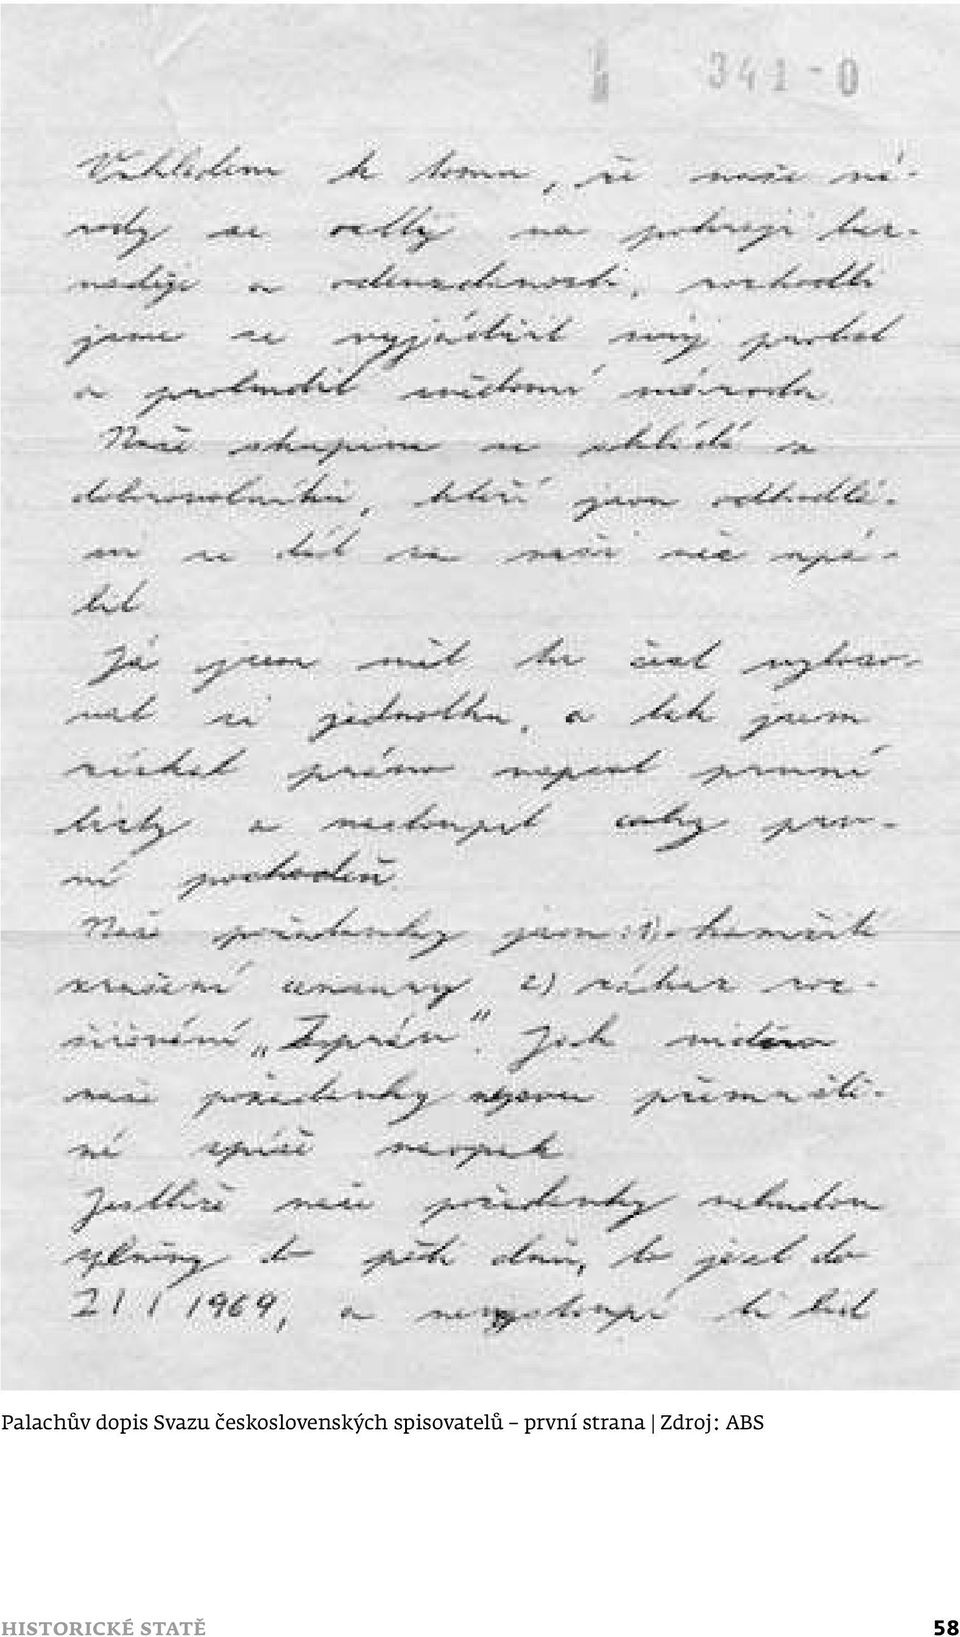 341-0
Vzhledem k tomu, že naše ná-
rody se octly na pokraji bez-
naděje a odevzdanosti, rozhodli
jsme se vyjádřit svůj protest
a probudit svědomí národa.
Naše skupina se skládá z
dobrovolníků, kteří jsou odhodlá-
ni se dát za naši věc upá-
lit.
Já jsem měl tu čest vyloso-
vat si jedničku, a tak jsem
získal právo napsat první
listy a nastoupit coby prv-
ní pochodeň.
Naše požadavky jsou: 1) okamžité
zrušení cenzury, 2) zákaz roz-
šiřování „Zpráv". Jak vidíte
naše požadavky nejsou přemrště-
né spíše naopak.
Jestliže naše požadavky nebudou
splněny do pěti dnů, to jest do
21. 1. 1969, a nevystoupí-li lid
Palachův dopis Svazu československých spisovatelů – první strana | Zdroj: ABS
HISTORICKÉ STATĚ 58